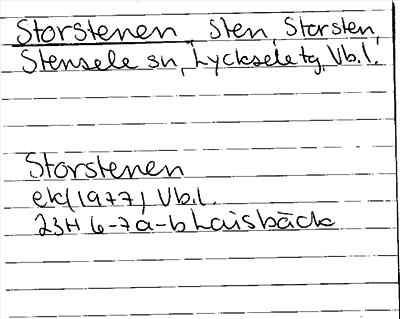 Storstenen, Sten, Storsten,
Stensele sn, Lycksele tg, Vb.l.
Storstenen
ek(1977) Vb.l.
23H 6-7a-b Laisbäck